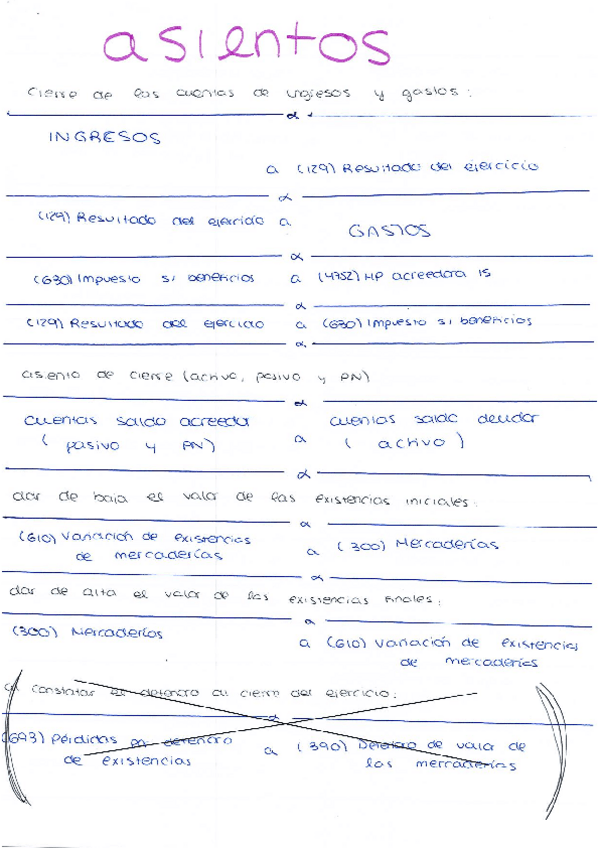 asientos
cierre de las cuentas de ingresos y gastos:
INGRESOS
a (129) Resultado del ejercicio
(129) Resultado del ejercicio a
GASTOS
(630) Impuesto s/ beneficios a (4752) HP acreedora IS
(129) Resultado del ejercicio a (630) Impuesto s/ beneficios
asiento de cierre (activo, pasivo y PN)
cuentas saldo acreedor cuentas saldo deudor
(pasivo y PN) a (activo)
dar de baja el valor de las existencias iniciales:
(610) Variación de existencias
de mercaderías a (300) Mercaderías
dar de alta el valor de las existencias finales:
(300) Mercaderías
a (610) Variación de existencias
de mercaderías
al constatar el deterioro al cierre del ejercicio:
(693) Pérdidas por deterioro
de existencias a (390) Deterioro de valor de
las mercaderías